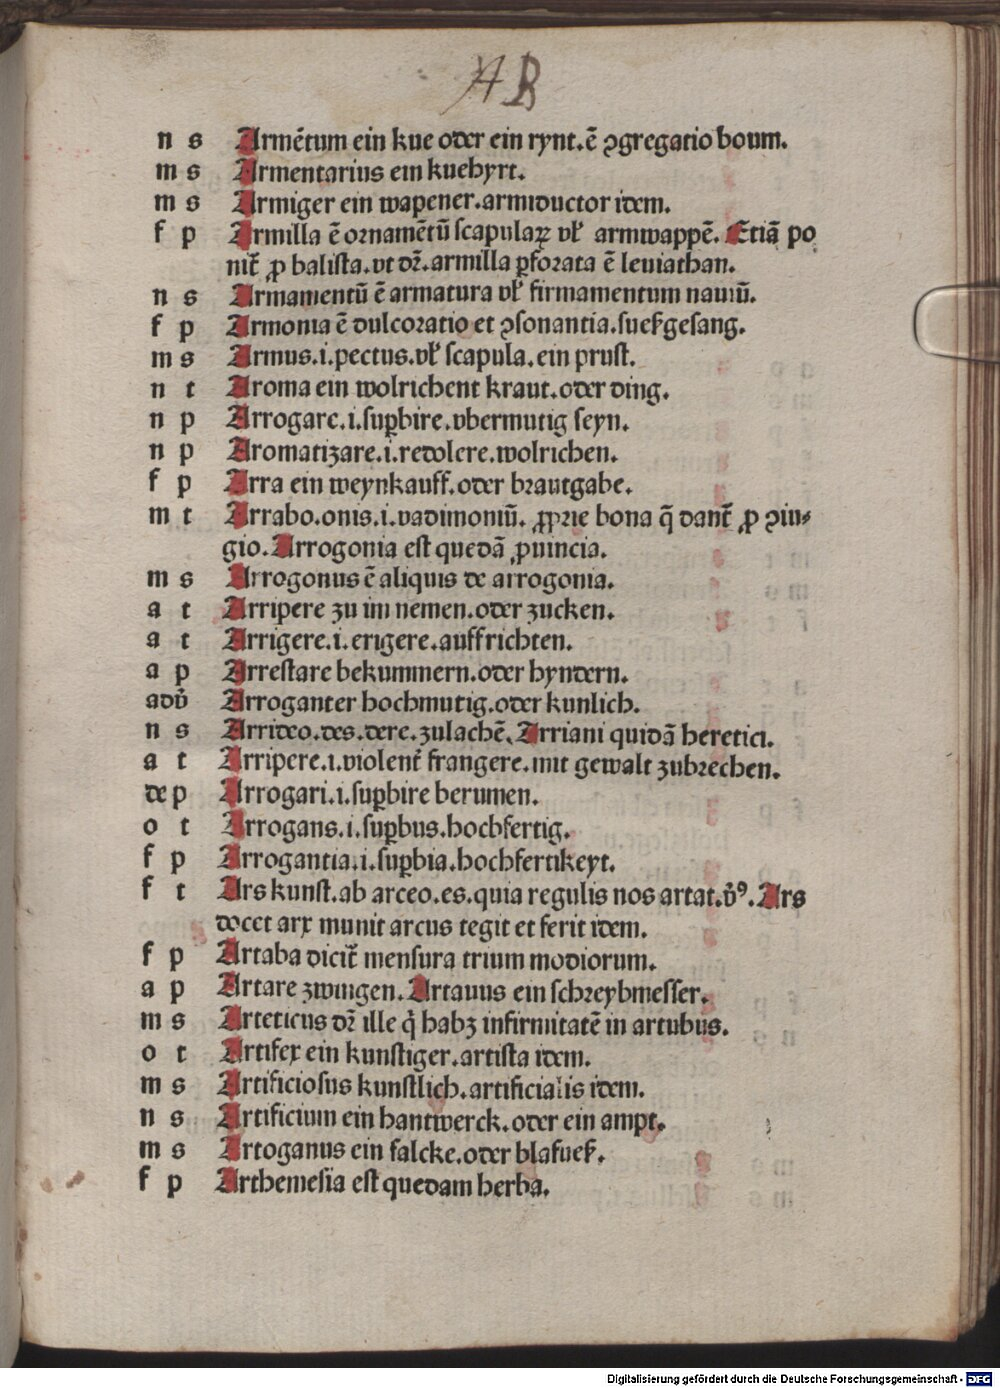 AB
n s Armẽtum ein kue oder ein rynt. ẽ ꝯgregatio boum.
m s Armentarius ein kuehyrt.
m s Armiger ein wapener. armiductor idem.
f p Armilla ẽ ornamẽtũ scapulaꝝ vł armwappẽ. Etiã po
nit᷑ ꝓ balista. vt dr̃. armilla ꝑforata ẽ leuiathan.
n s Armamentũ ẽ armatura vł firmamentum nauiũ.
f p Armonia ẽ dulcoratio et ꝯsonantia. sueßgesang.
m s Armus .i. pectus. vł scapula. ein prust.
n t Aroma ein wolrichent kraut. oder ding.
n p Arrogare .i. suꝑbire. vbermutig seyn.
n p Aromatizare .i. redolere. wolrichen.
f p Arra ein weynkauff. oder brautgabe.
m t Arrabo. onis .i. vadimoniũ. ꝓprie bona q̃ dant᷑ ꝓ ꝯiu⸗
gio. Arrogonia est quedã ꝓuincia.
m s Arrogonus ẽ aliquis de arrogonia.
a t Arripere zu im nemen. oder zucken.
a t Arrigere .i. erigere. auffrichten.
a p Arrestare bekummern. oder hyndern.
adv̉ Arroganter hochmutig. oder kunlich.
n s Arrideo. des. dere. zulachẽ. Arriani quidã heretici.
a t Arripere .i. violent᷑ frangere. mit gewalt zubrechen.
de p Arrogari .i. suꝑbire berumen.
o t Arrogans .i. suꝑbus. hochfertig.
f p Arrogantia .i. suꝑbia. hochfertikeyt.
f t Ars kunst. ab arceo. es. quia regulis nos artat. v̉ꝰ. Ars
docet arx munit arcus tegit et ferit idem.
f p Artaba dicit᷑ mensura trium modiorum.
a p Artare zwingen. Artauus ein schreybmesser.
m s Arteticus dr̃ ille q̇ habꝫ infirmitatẽ in artubus.
o t Artifex ein kunstiger. artista idem.
m s Artificiosus kunstlich. artificialis idem.
n s Artificium ein hantwerck. oder ein ampt.
m s Artoganus ein falcke. oder blafueß.
f p Arthemesia est quedam herba.
Digitalisierung gefördert durch die Deutsche Forschungsgemeinschaft - DFG